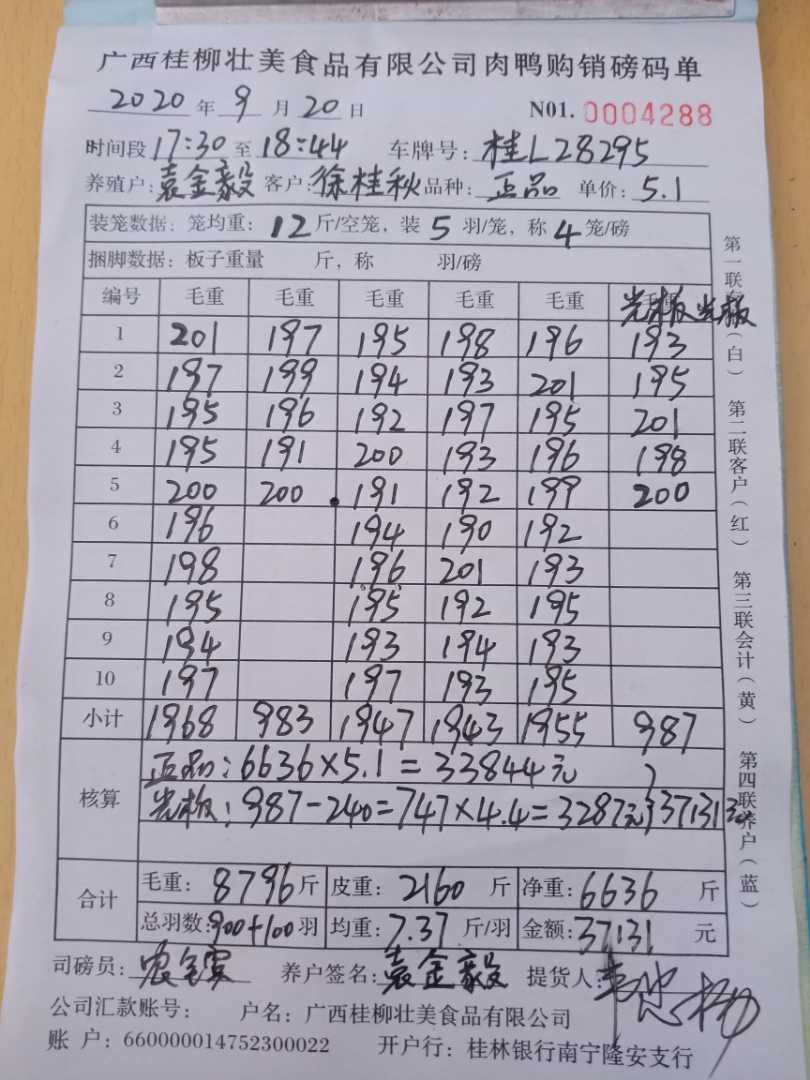 广西桂柳壮美食品有限公司肉鸭购销磅码单
2020年9月20日 N01. 0004288
时间段17:30至18:44 车牌号:桂L28295
养殖户:袁金毅 客户:徐桂秋 品种:正品 单价:5.1
装笼数据:笼均重:12斤/空笼,装5羽/笼,称4笼/磅
捆脚数据:板子重量 斤,称 羽/磅
编号 毛重 毛重 毛重 毛重 毛重 光板光板
1 201 197 195 198 196 193
2 197 199 194 193 201 195
3 195 196 192 197 195 201
4 195 191 200 193 196 198
5 200 200 191 192 199 200
6 196 194 190 192
7 198 196 201 193
8 195 195 192 195
9 194 193 194 193
10 197 197 193 195
小计 1968 983 1947 1943 1955 987
核算 正品:6636×5.1=33844元
光板:987-240=747×4.4=3287元}37131元
合计 毛重:8796斤 皮重:2160斤 净重:6636斤
总羽数:900+100羽 均重:7.37斤/羽 金额:37131元
司磅员: 养户签名:袁金毅 提货人:
公司汇款账号: 户名:广西桂柳壮美食品有限公司
账户:660000014752300022 开户行:桂林银行南宁隆安支行
第一联(白)第二联客户(红)第三联会计(黄)第四联养户(蓝)